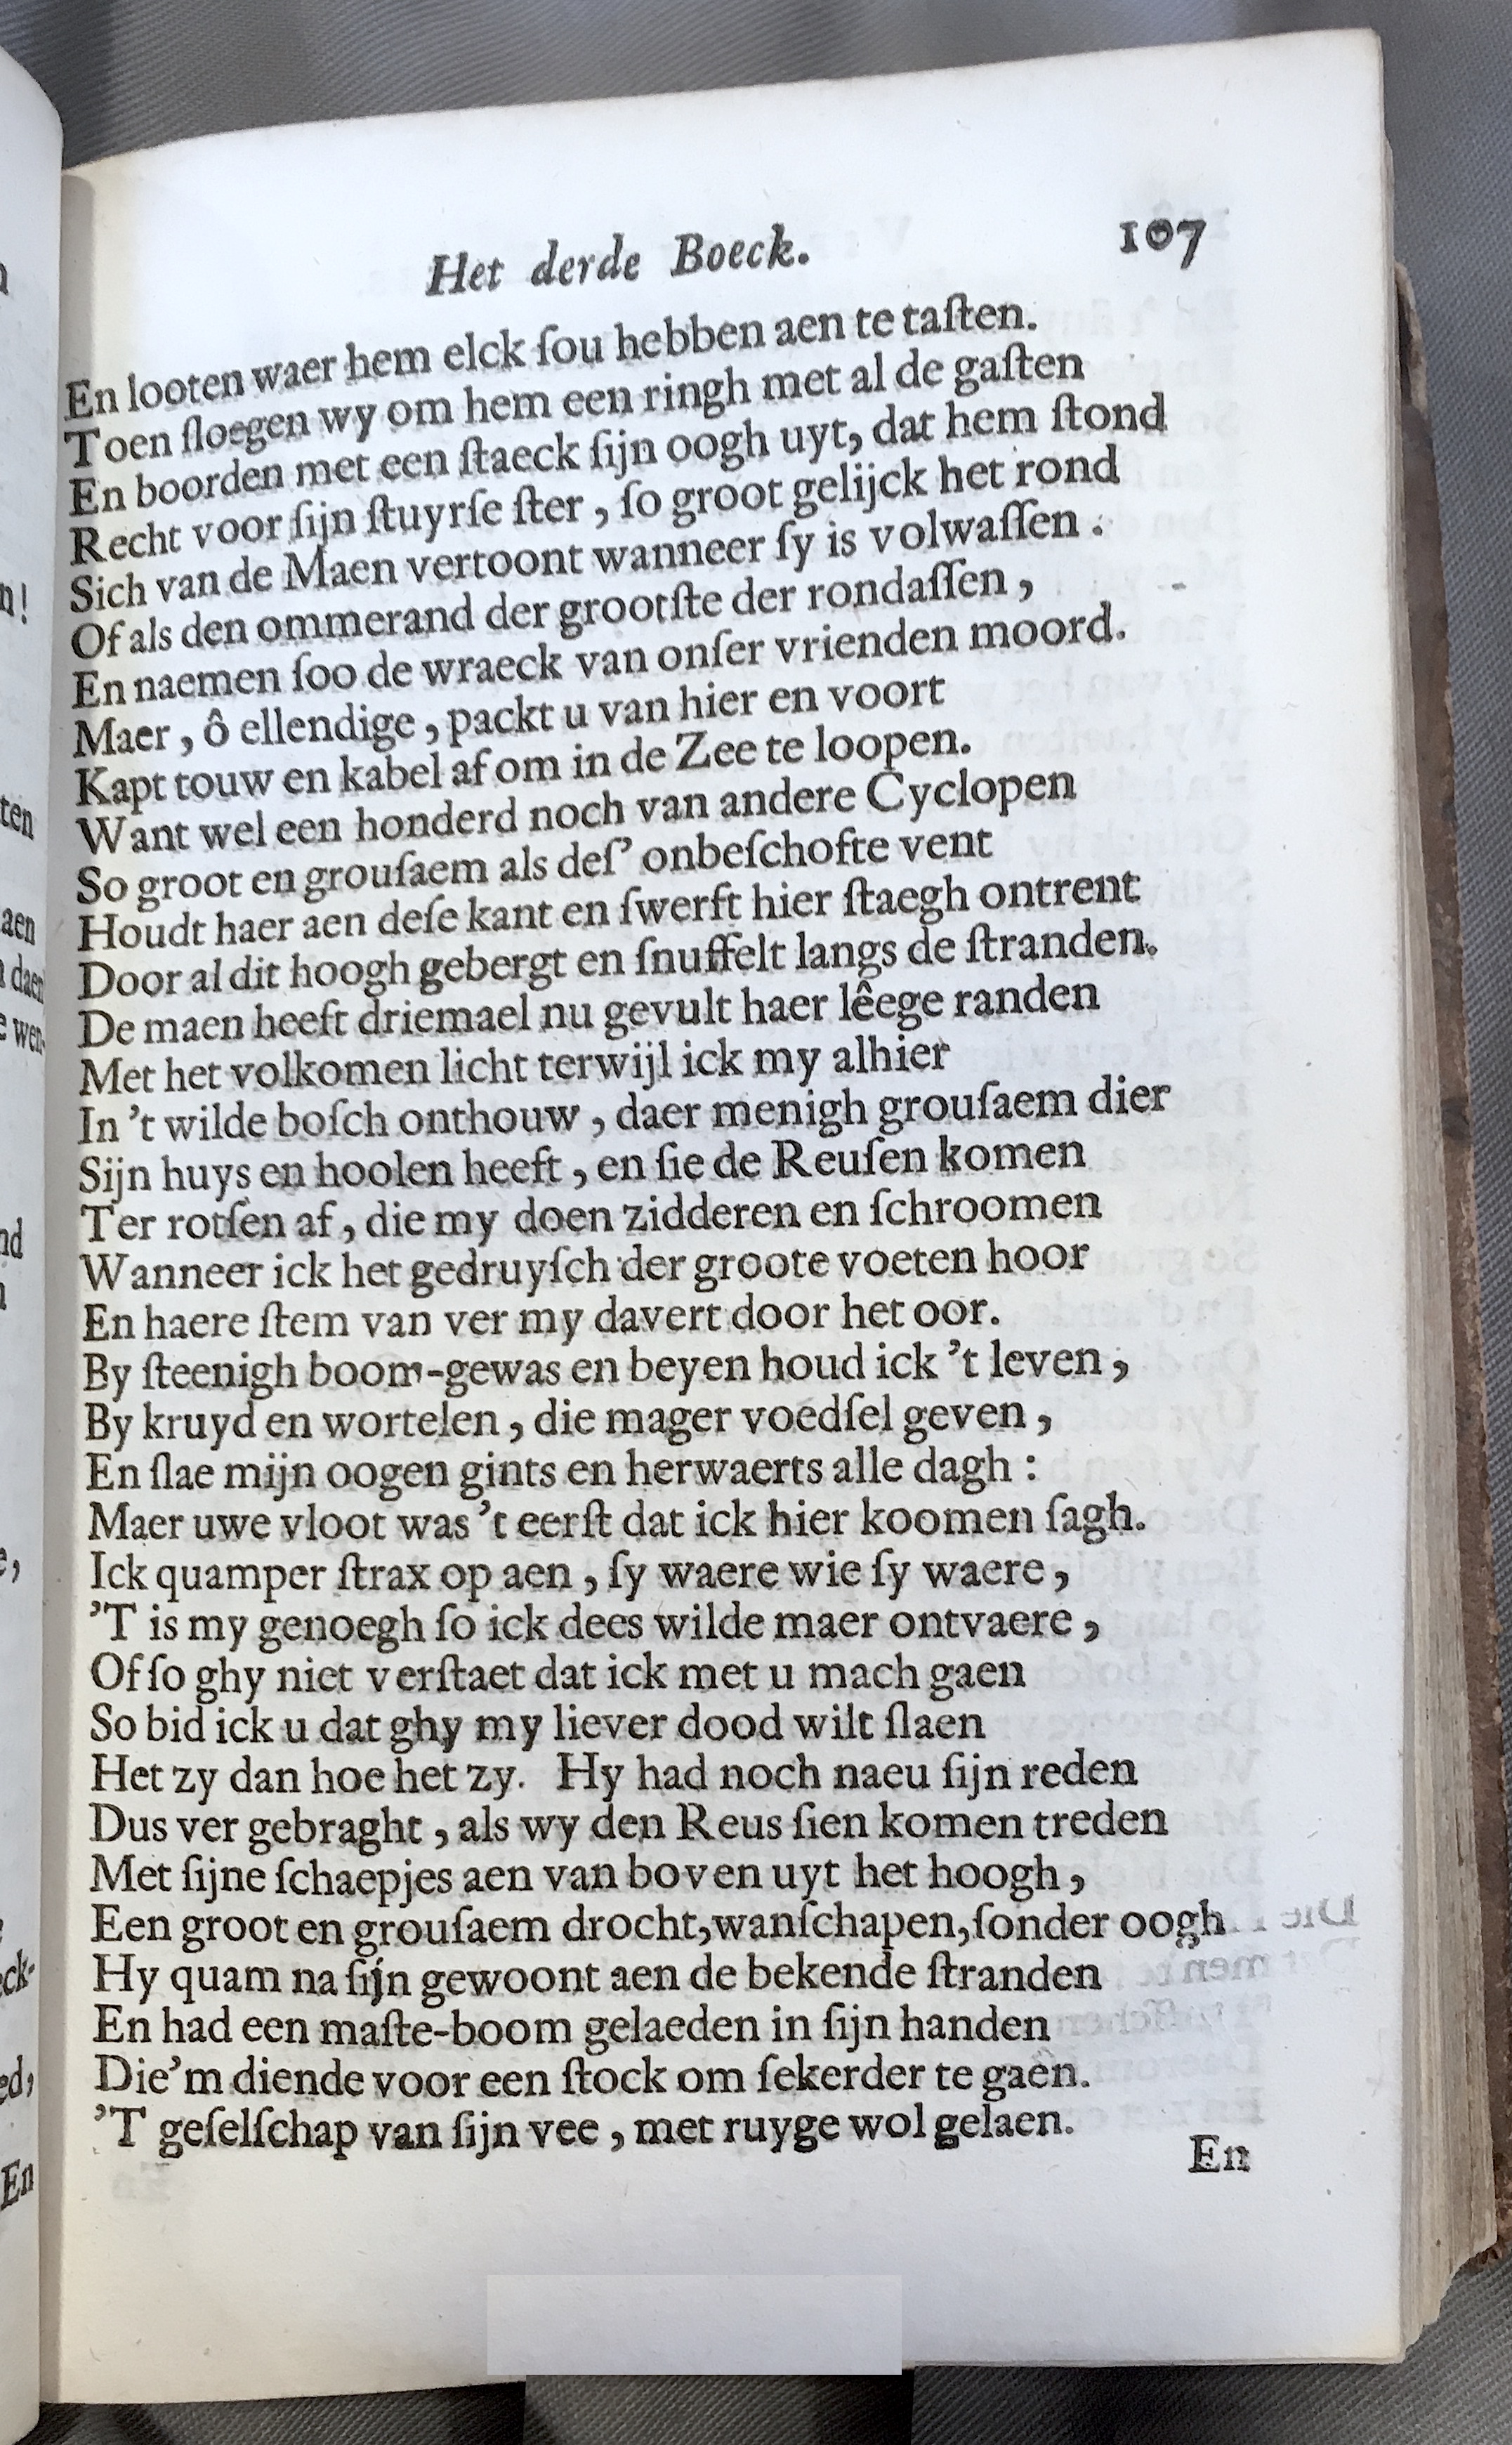 Het derde Boeck. 107
En looten waer hem elck ſou hebben aen te taſten.
Toen ſloegen wy om hem een ringh met al de gaſten
En boorden met een ſtaeck ſijn oogh uyt, dat hem ſtond
Recht voor ſijn ſtuyrſe ſter, ſo groot gelijck het rond
Sich van de Maen vertoont wanneer ſy is volwaſſen.
Of als den ommerand der grootſte der rondaſſen,
En naemen ſoo de wraeck van onſer vrienden moord.
Maer, ô ellendige, packt u van hier en voort
Kapt touw en kabel af om in de Zee te loopen.
Want wel een honderd noch van andere Cyclopen
So groot en grouſaem als deſ' onbeſchofte vent
Houdt haer aen deſe kant en ſwerft hier ſtaegh ontrent
Door al dit hoogh gebergt en ſnuffelt langs de ſtranden.
De maen heeft driemael nu gevult haer lêege randen
Met het volkomen licht terwijl ick my alhier
In 't wilde boſch onthouw, daer menigh grouſaem dier
Sijn huys en hoolen heeft, en ſie de Reuſen komen
Ter rotſen af, die my doen zidderen en ſchroomen
Wanneer ick het gedruyſch der groote voeten hoor
En haere ſtem van ver my davert door het oor.
By ſteenigh boom-gewas en beyen houd ick 't leven,
By kruyd en wortelen, die mager voedſel geven,
En ſlae mijn oogen gints en herwaerts alle dagh:
Maer uwe vloot was 't eerſt dat ick hier koomen ſagh.
Ick quamper ſtrax op aen, ſy waere wie ſy waere,
'T is my genoegh ſo ick dees wilde maer ontvaere,
Of ſo ghy niet verſtaet dat ick met u mach gaen
So bid ick u dat ghy my liever dood wilt ſlaen
Het zy dan hoe het zy. Hy had noch naeu ſijn reden
Dus ver gebraght, als wy den Reus ſien komen treden
Met ſijne ſchaepjes aen van boven uyt het hoogh,
Een groot en grouſaem drocht, wanſchapen, ſonder oogh
Hy quam na ſijn gewoont aen de bekende ſtranden
En had een maſte-boom gelaeden in ſijn handen
Die'm diende voor een ſtock om ſekerder te gaen.
'T geſelſchap van ſijn vee, met ruyge wol gelaen.
En